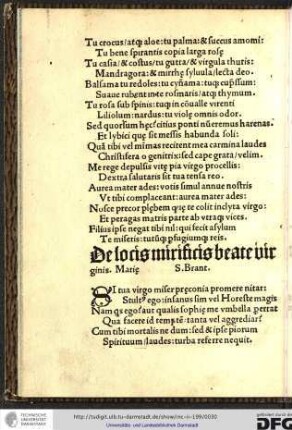 Tu crocus/atq; aloe: tu palma: & succus amomi:
Tu bene spirantis copia larga rosę
Tu casia/ & costus/ tu gutta/ & virgula thuris:
Mandragora: & mirrhę syluula/ lecta deo.
Balsama tu redoles: tu cyñama: tuq; cupssum:
Suaue rubent inte rosmaris/ atq; thymum.
Tu rosa sub spinis: tuq; in cōualle virenti
Liliolum: nardus: tu viole omnis odor.
Sed quorsum hęc: sitius ponti nūeremus harenas.
Et lybici quę sit messis habunda soli:
Quā tibi vel mimas recitent mea carmina laudes
Christifera o genitrix: sed cape grata/ velim.
Me rege depulsus vitę pia virgo procellis:
Dextra salutaris sit tua tensa reo.
Aurea mater ades: votis simul annue nostris
Vt tibi complaceant: aurea mater ades:
Nosce precor plębem quę te colit inclyta virgo:
Et peragas matris parte ab vtraq; vices.
Filius ipse negat tibi nil: qui fecit asylum
Te miseris: tutūq; pfugiumq; reis.
De locis mirificis beate vir
ginis. Marię S. Brant.
SI tua virgo miser pręconia promere nitar:
Stultꝰ ego: insanus sim vel Horeste magis
Nam qs ego: aut qualis sophię me vmbella perrat
Qua facere id temptē: tanta vel aggrediar:
Cum tibi mortalis ne dum: sed & ipse piorum
Spirituum/ laudes: turba referre nequit.
http://tudigit.ulb.tu-darmstadt.de/show/inc-ii-199/0030
Universitäts- und Landesbibliothek Darmstadt
TECHNISCHE UNIVERSITÄT DARMSTADT
gefördert durch die
DFG